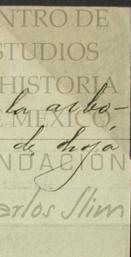 NTRO DE
ESTUDIOS
HISTORIA
la arbo-
E MEXICO
de hoja
NDACIÓN
arlos Slim